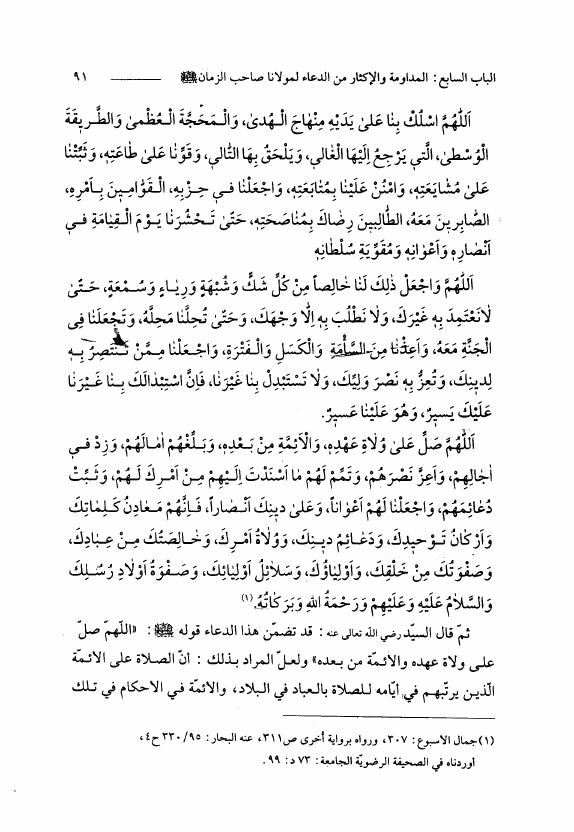 الباب السابع: المداومة والإكثار من الدعاء لمولانا صاحب الزمان ﷺ ــــــــــ ٩١
اَللّٰهُمَّ اسْلُكْ بِنٰا عَلىٰ يَدَيْهِ مِنْهٰاجَ الْـهُدىٰ، وَالْـمَحَجَّةَ الْـعُظْمىٰ وَالطَّريقَةَ
الْوُسْطىٰ، الَّتي يَرْجِعُ إِلَيْهَا الْغٰالي، وَيَلْحَقُ بِهَا التّٰالي، وَقَوِّنٰا عَلىٰ طٰاعَتِهِ، وَثَبِّتْنٰا
عَلىٰ مُشٰايَعَتِهِ، وَامْنُنْ عَلَيْنٰا بِمُتٰابَعَتِهِ، وَاجْعَلْنٰا فـي حِزْبِهِ، الْـقَوّٰامـينَ بِـأَمْرِهِ،
الصّٰابِرينَ مَعَهُ، الطّٰالِبينَ رِضٰاكَ بِمُنٰاصَحَتِهِ، حَتّىٰ تَـحْشُرَنٰا يَـوْمَ الْـقِيٰامَةِ فـي
أَنْصٰارِهِ وَأَعْوٰانِهِ وَمُقَوِّيَةِ سُلْطٰانِهِ
اَللّٰهُمَّ وَاجْعَلْ ذٰلِكَ لَنٰا خٰالِصاً مِنْ كُلِّ شَكٍّ وَشُبْهَةٍ وَرِيٰاءٍ وَسُـمْعَةٍ، حَـتّىٰ
لاٰنَعْتَمِدَ بِهِ غَيْرَكَ، وَلاٰ نَطْلُبَ بِهِ إِلّاٰ وَجْهَكَ، وَحَتّىٰ تُحِلَّنٰا مَحِلَّهُ، وَتَجْعَلَنٰا فِى
الْجَنَّةِ مَعَهُ، وَأَعِذْنٰا مِنَ السَّأْمَةِ وَالْكَسَلِ وَالْـفَتْرَةِ، وَاجْـعَلْنٰا مِـمَّنْ تَـنْتَصِرُ بِـهِ
لِدينِكَ، وَتُعِزُّ بِهِ نَصْرَ وَلِيِّكَ، وَلاٰ تَسْتَبْدِلْ بِنٰا غَيْرَنٰا، فَإِنَّ اسْتِبْدٰالَكَ بِـنٰا غَـيْرَنٰا
عَلَيْكَ يَسيرٌ، وَهُوَ عَلَيْنٰا عَسيرٌ.
اَللّٰهُمَّ صَلِّ عَلىٰ وُلاٰةِ عَهْدِهِ، وَالْأَئِمَّةِ مِنْ بَعْدِهِ، وَبَلِّغْهُمْ آمٰالَهُمْ، وَزِدْ فـي
آجٰالِهِمْ، وَأَعِزَّ نَصْرَهُمْ، وَتَمِّمْ لَهُمْ مٰا أَسْنَدْتَ إِلَيْـهِمْ مِـنْ أَمْـرِكَ لَـهُمْ، وَثَـبِّتْ
دَعٰائِمَهُمْ، وَاجْعَلْنٰا لَهُمْ أَعْوٰاناً، وَعَلىٰ دينِكَ أَنْـصٰاراً، فَـإِنَّهُمْ مَـعٰادِنُ كَـلِمٰاتِكَ
وَأَرْكٰانُ تَوْحيدِكَ، وَدَعٰائِمُ دينِكَ، وَوُلاٰةُ أَمْـرِكَ، وَخٰـالِصَتُكَ مِـنْ عِبٰادِكَ،
وَصَفْوَتُكَ مِنْ خَلْقِكَ، وَأَوْلِيٰاؤُكَ، وَسَلاٰئِلُ أَوْلِيٰائِكَ، وَصَـفْوَةُ أَوْلاٰدِ رُسُـلِكَ
وَالسَّلاٰمُ عَلَيْهِ وَعَلَيْهِمْ وَرَحْمَةُ اللهِ وَبَرَكٰاتُهُ.(١)
ثمّ قال السيّد رضي الله تعالى عنه : قد تضمّن هذا الدعاء قوله ﷺ : «اللّهمّ صلّ
على ولاة عهده والائمّة من بعده» ولعلّ المراد بذلك : أنّ الصلاة على الائمّة
الّذين يرتّبهم في أيّامه للصلاة بالعباد في البلاد، والائمّة في الاحكام في تلك
(١) جمال الاسبوع: ٣٠٧، ورواه برواية أخرى ص٣١١، عنه البحار: ٣٣٠/٩٥ ح٤،
أوردناه في الصحيفة الرضويّة الجامعة: ٧٣ د: ٩٩.